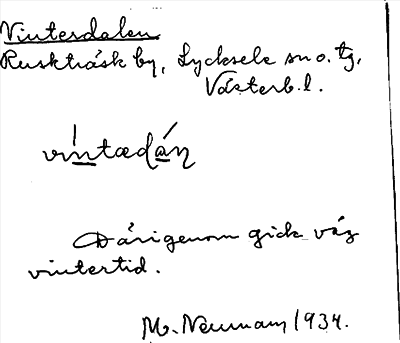 Vinterdalen
Ruskträsk by, Lycksele sn o. tg.
Västerb. l.
vintədáṇ
Därigenom gick väg
vintertid.
M. Neuman 1934.